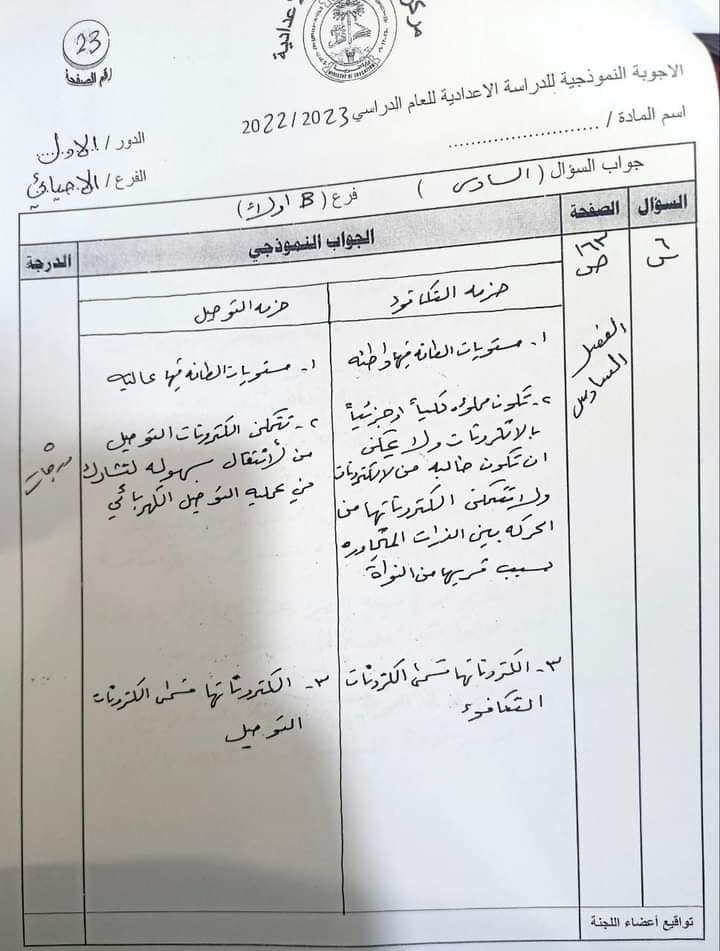 23
رقم الصفحة
الاجوبة النموذجية للدراسة الاعدادية للعام الدراسي 2022/2023
اسم المادة / ..........................
الدور / الاول...
الفرع / الاحيائي
جواب السؤال ( السادس ) فرع ( B اولاً )
السؤال
الصفحة
الجواب النموذجي
الدرجة
س٦
ص ١٦٣
الفصل السادس
حزمه التكافؤ
١- مستويات الطاقه فيها واطئه
٢- تكون مملؤه كلياً او جزئياً
بالالكترونات ولا يمكن
ان تكون خاليه من الالكترونات
ولا تتمكن الكتروناتها من
الحركه بين الذرات المتجاوره
بسبب قربها من النواة
٣- الكتروناتها تسمى الكترونات
التكافوء
حزمه التوصيل
١- مستويات الطاقه فيها عاليه
٢- تتمكن الكترونات التوصيل
من الأنتقال بسهوله لتشارك
في عمليه التوصيل الكهربائي
٣- الكتروناتها تسمى الكترونات
التوصيل
٥ درجات
تواقيع أعضاء اللجنة